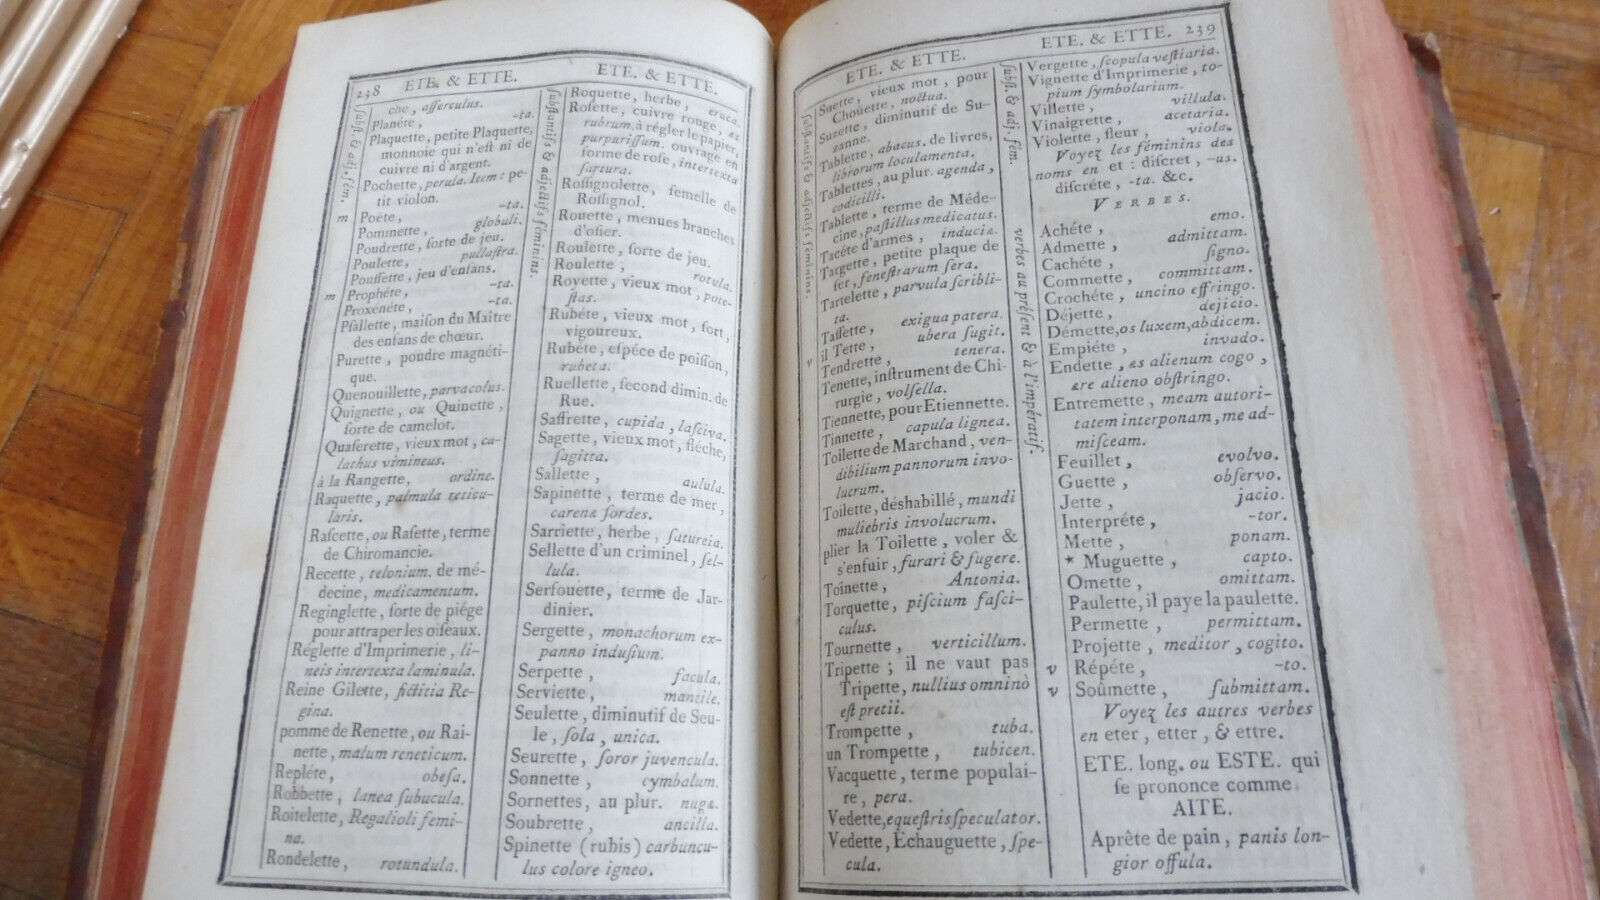 238 ETE. & ETTE.
che, asserculus.
Planéte, -ta.
Plaquette, petite Plaquette,
monnoie qui n'est ni de
cuivre ni d'argent.
Pochette, perula. Item: pe-
tit violon.
m Poëte, -ta.
Pommette, globuli.
Poudrette, sorte de jeu.
Poulette, pullastra.
Poussette, jeu d'enfans.
m Prophéte, -ta.
Proxenéte, -ta.
Psallette, maison du Maître
des enfans de chœur.
Purette, poudre magnéti-
que.
Quenouillette, parvacolus.
Quignette, ou Quinette,
sorte de camelot.
Quaserette, vieux mot, ca-
lathus vimineus.
à la Rangette, ordine.
Raquette, palmula reticu-
laris.
Rascette, ou Rasette, terme
de Chiromancie.
Recette, telonium. de mé-
decine, medicamentum.
Reginglette, sorte de piége
pour attraper les oiseaux.
Réglette d'Imprimerie, li-
neis intertexta laminula.
Reine Gilette, fictitia Re-
gina.
pomme de Renette, ou Rai-
nette, malum reneticum.
Repléte, obesa.
Robbette, lanea subucula.
Roitelette, Regalioli femi-
na.
Rondelette, rotundula.
Subst. & adj. fém.
ETE. & ETTE.
Roquette, herbe, eruca.
Rosette, cuivre rouge, æs
rubrum, à régler le papier,
purpurissum. ouvrage en
forme de rose, intertexta
sartura.
Rossignolette, femelle de
Rossignol.
Rouette, menues branches
d'osier.
Roulette, sorte de jeu.
Roulette, rotula.
Royette, vieux mot, pote-
stas.
Rubéte, vieux mot, fort,
vigoureux.
Rubéte, espéce de poisson,
rubeta.
Ruellette, second dimin. de
Rue.
Saffrette, cupida, lasciva.
Sagette, vieux mot, fléche,
sagitta.
Sallette, aulula.
Sapinette, terme de mer,
carenæ sordes.
Sarriette, herbe, satureia.
Sellette d'un criminel, sel-
lula.
Serfouette, terme de Jar-
dinier.
Sergette, monachorum ex-
panno indusium.
Serpette, facula.
Serviette, mantile.
Seulette, diminutif de Seu-
le, sola, unica.
Seurette, soror juvencula.
Sonnette, cymbalum.
Sornettes, au plur. nugæ.
Soubrette, ancilla.
Spinette (rubis) carbuncu-
lus colore igneo.
Substantifs & adjectifs féminins.
ETE. & ETTE.
Suette, vieux mot, pour
Chouette, noctua.
Suzette, diminutif de Su-
zanne.
Tablette, abacus. de livres,
librorum loculamenta.
Tablettes, au plur. agenda,
codicilli.
Tablette, terme de Méde-
cine, pastillus medicatus.
Tacéte d'armes, induciæ.
Targette, petite plaque de
fer, fenestrarum sera.
Tartelette, parvula scribli-
ta.
Tassette, exigua patera.
v il Tette, ubera sugit.
Tendrette, tenera.
Tenette, instrument de Chi-
rurgie, volsella.
Tiennette, pour Etiennette.
Tinnette, capula lignea.
Toilette de Marchand, ven-
dibilium pannorum invo-
lucrum.
Toilette, déshabillé, mundi
muliebris involucrum.
plier la Toilette, voler &
s'enfuir, furari & fugere.
Toînette, Antonia.
Torquette, piscium fasci-
culus.
Tournette, verticillum.
Tripette; il ne vaut pas
Tripette, nullius omninò
est pretii.
Trompette, tuba.
un Trompette, tubicen.
Vacquette, terme populai-
re, pera.
Vedette, equestris speculator.
Vedette, Echauguette, spe-
cula.
Substantifs & adjectifs féminins.
ETE. & ETTE. 239
Vergette, scopula vestiaria.
Vignette d'Imprimerie, to-
pium symbolarium.
Villette, villula.
Vinaigrette, acetaria.
Violette, fleur, viola.
Voyez les féminins des
noms en et: discret, -us.
discréte, -ta. &c.
VERBES.
Achéte, emo.
Admette, admittam.
Cachéte, signo.
Commette, committam.
Crochéte, uncino effringo.
Déjette, dejicio.
Démette, os luxem, abdicem.
Empiéte, invado.
Endette, æs alienum cogo,
ære alieno obstringo.
Entremette, meam autori-
tatem interponam, me ad-
misceam.
Feuillet, evolvo.
Guette, observo.
Jette, jacio.
Interpréte, -tor.
Mette, ponam.
* Muguette, capto.
Omette, omittam.
Paulette, il paye la paulette.
Permette, permittam.
Projette, meditor, cogito.
v Répéte, -to.
v Soûmette, submittam.
Voyez les autres verbes
en eter, etter, & ettre.
ETE. long. ou ESTE. qui
se prononce comme
AITE.
Aprête de pain, panis lon-
gior offula.
subst. & adj. fém.
verbes au présent & à l'impératif.